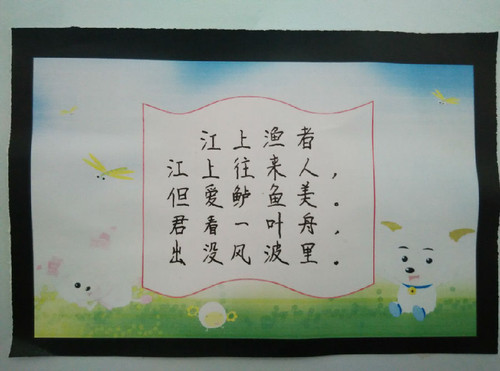 江上渔者
江上往来人，
但爱鲈鱼美。
君看一叶舟，
出没风波里。